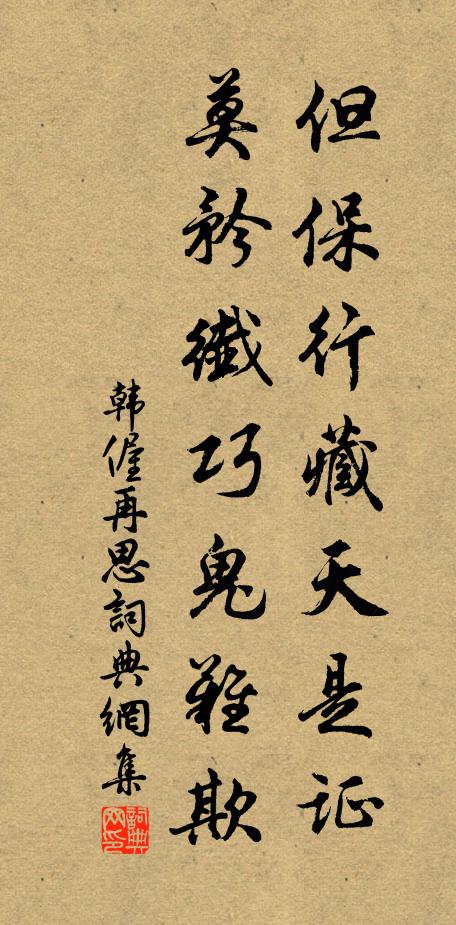 但保行藏天是证
莫矜纖巧鬼難欺
韩偓再思詞典網集
詞典网印